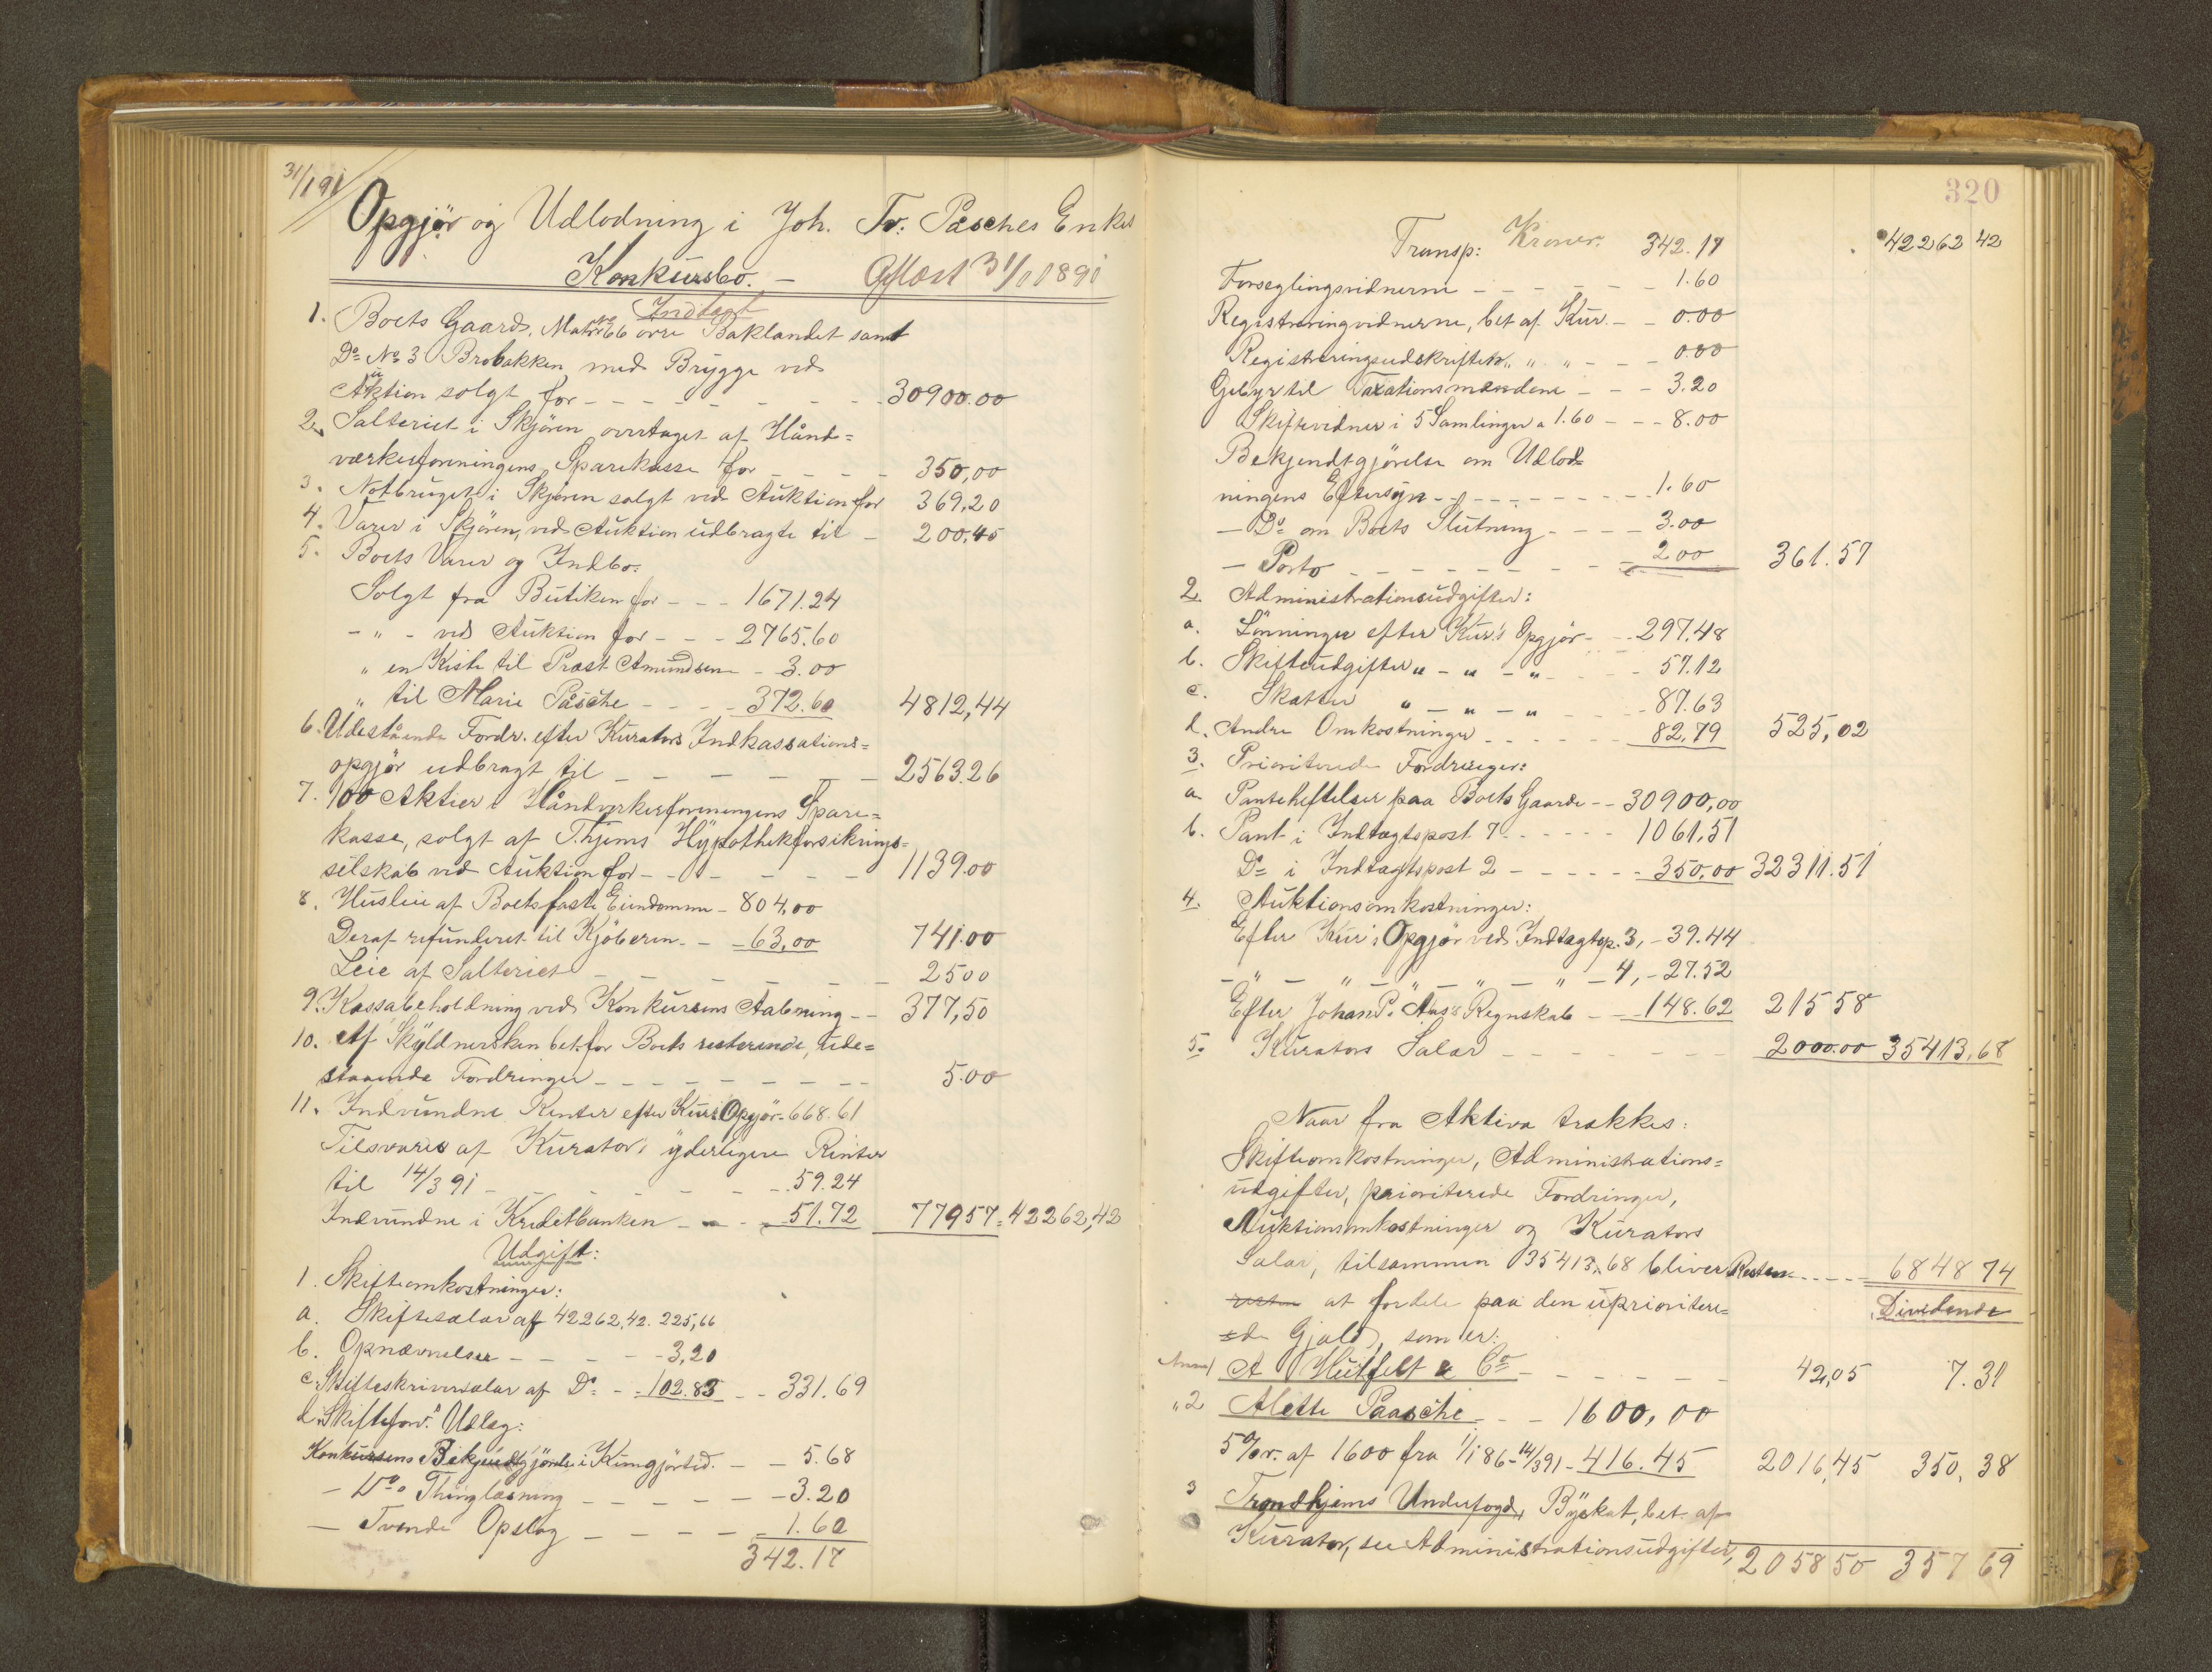 31/1 91
Opgjør og Udlodning i Joh. Fr. Pasches Enkes
Konkursbo. — Afflæst 31/1 1891
Indtægt
1. Boets Gaard, Matr No 66 øvre Baklandet samt
Do No 3 Brobakken med Brygge ved
Auktion solgt for - - - - - 30900.00
2. Salteriet i Skjören overtaget af Hånd=
værkerforeningens Sparekasse for - - - - 350,00
3. Notbruget i Skjören solgt ved Auktion for 369,20
4. Varer i Skjören, ved Auktion udbragte til - 200,45
5. Boets Varer og Indbo:
Solgt fra Butiken for - - - 1671.24
- " - ved Auktion for - - - 2765.60
" en Kiste til Præst Amundsen - 3.00
" til Marie Påsche - - - - 372.60 4812,44
6. Udestående Fordr. efter Kurators Indkassations=
opgjör udbragt til - - - - - - 2563.26
7. 100 Aktier i Håndværkerforeningens Spare=
kasse, solgt af Thjems Hypothekforsikrings=
selskab ved Auktion for - - - - - - 1139.00
8. Husleie af Boets faste Eiendomme - 804,00
Deraf refunderet til Kjöberen - - 63,00 741.00
Leie af Salteriet - - - - - - 2500
9. Kassabeholdning ved Konkursens Aabning - - 377,50
10. Af Skyldnersken bet. for Boets resterende, ude=
staaende Fordringer - - - - - - - - - 5.00
11. Indvundne Renter efter Kur's Opgjör - 668.61
Tilsvares af Kurator's yderligere Renter
til 14/3 91 - - - - - - - 59.24
Indvundne i Kreditbanken - - - 51.72 77957 = 42262,42
Udgift:
1. Skifteomkostninger:
a. Skiftesalar af 42262,42. 225,66
b. Opnævnelse - - - - - 3,20
c. Skifteskriversalar af Do - - 102.83 - - 331.69
d. Skifteforv.s Udlæg:
Konkursens Bekjendtgjörelse i Kungjörtid. - - 5.68
- Do Thinglæsning - - - - - - 3.20
- Tvende Opslag - - - - - 1.60
342.17
320
Transp: Kroner. 342.17 42262 42
Forseglingsvidnerne - - - - - - 1.60
Registreringvidnerne, bet af Kur. - - 0.00
Registreringsudskriften " " - - - 0.00
Gebyr til Taxationsmændene - - - 3.20
Skiftevidner i 5 Samlinger a 1.60 - - - 8.00
Bekjendtgjörelse om Udlod=
ningens Eftersyn - - - - - - - - 1.60
- Do om Boets Slutning - - - - 3.00
- Porto - - - - - - - - - 200 361.57
2. Administrationsudgifter:
a. Lönninger efter Kur's Opgjör - - 297.48
b. Skifteudgifter " - " - " - - - 57.12
c. Skatter " - " - " - - - 87.63
d. Andre Omkostninger - - - - - - 82,79 525,02
3. Prioriterede Fordringer:
a. Panteheftelser paa Boets Gaarde - - 30900,00
b. Pant i Indtægtspost 7 - - - - - - 1061,51
Do i Indtægtspost 2 - - - - - - 350,00 32311.51
4. Auktionsomkostninger:
Efter Kur's Opgjör ved Indtægtsp. 3, - 39.44
- " - " - " - " - " - 4, - 27.52
Efter Johan P. Aas's Regnskab - - - 148.62 215 58
5. Kurators Salar - - - - - - - 2000.00 35413,68
Naar fra Aktiva trækkes:
Skifteomkostninger, Administrations=
udgifter, prioriterede Fordringer,
Auktionsomkostninger og Kurators
Salar, tilsammen 35413.68 bliver Resten - - - - 6848 74
resten at fordele paa den uprioritere= Dividende
de Gjæld, som er:
Anm 1 A Huitfelt & Co - - - - - - - 42,05 7.31
" 2 Alette Paasche - - - 1600,00
5% r. af 1600 fra 1/1 86 - 14/3 91 - 416.45 2016,45 350,38
3 Trondhjems Underfogd, Byskat, bet. af
Kurator, see Administrationsudgifter, 205850 357 69